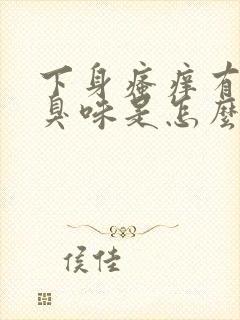 下身瘙痒有
臭味是怎麽
侯佳